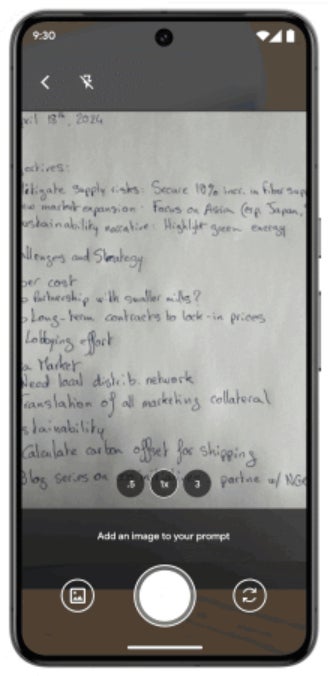 9:30
ril 18th, 2024
ectives:
itigate supply risks: Secure 10% incr. in fiber sup
ew market expansion: Focus on Asia (esp. Japan,
ustainability narrative: Highlight green energy
llenges and Strategy
per cost
Partnership with smaller mills?
Long-term contracts to lock-in prices
Lobbying effort
a Market
Need local distrib. network
ranslation of all marketing collateral
stainability
Calculate carbon offset for shipping
Blog series on partner w/ NGO
.5 1x 3
Add an image to your prompt